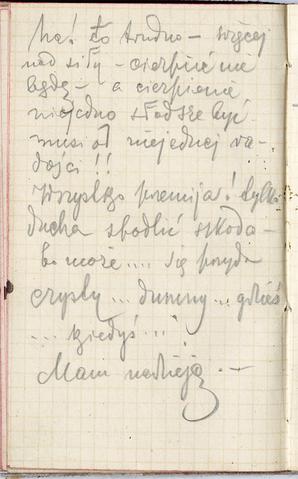 Ha! to trudno – więcej
nad siły – cierpieć nie
będę – a cierpienie
niejedno słodsze być
musi od niejednej ra-
dości!!
Wszystko przemija! tylko
ducha szkoda –
bo może .... się przyda
czysty ... dumny ... gdzieś
... kiedyś ...
Mam nadzieję. –